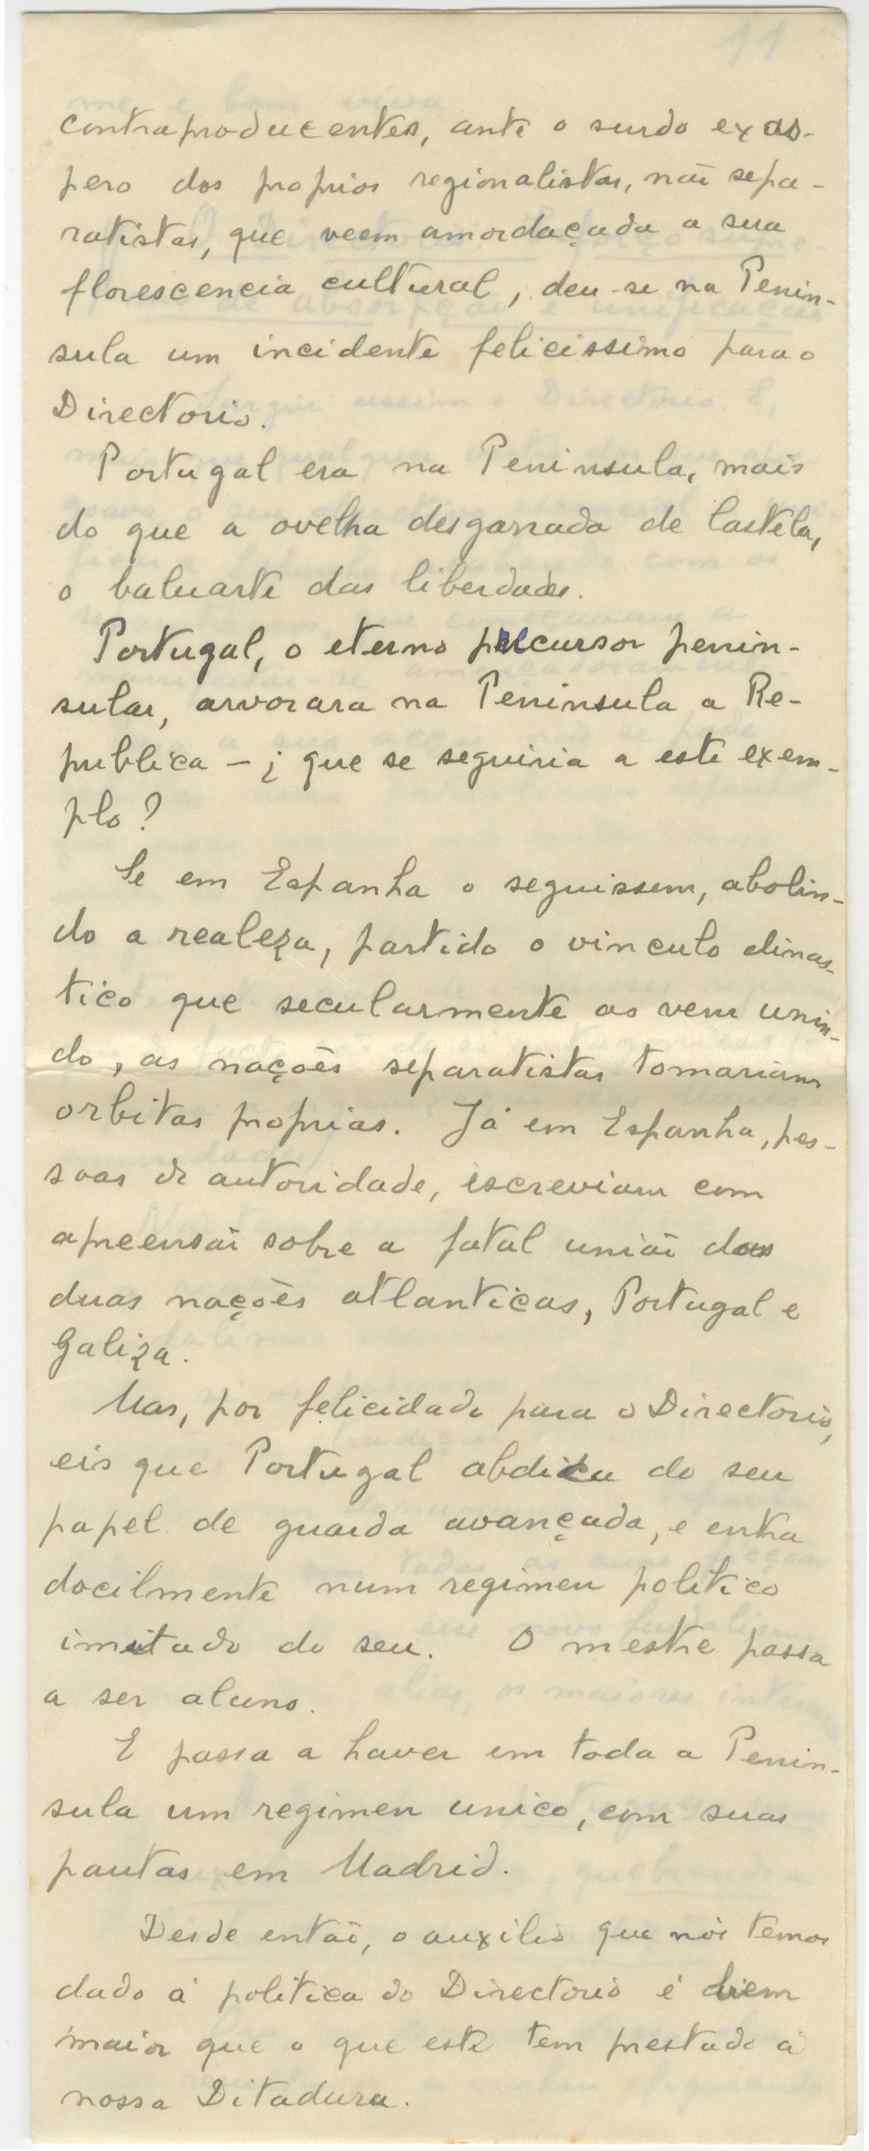 11
contraproducentes, ante o surdo exas-
pero dos proprios regionalistas, não sepa-
ratistas, que veem amordaçada a sua
florescencia cultural, deu-se na Penin-
sula um incidente felicissimo para o
Directorio.
Portugal era na Peninsula, mais
do que a ovelha desgarrada de Castela,
o baluarte das liberdades.
Portugal, o eterno precursor penin-
sular, arvorara na Peninsula a Re-
publica – ¿ que se seguiria a este exem-
plo?
Se em Espanha o seguissem, abolin-
do a realeza, partido o vinculo dinas-
tico que secularmente as vem unin-
do, as nações separatistas tomariam
orbitas proprias. Já em Espanha, pes-
soas de autoridade, escreviam com
apreensão sobre a fatal união das
duas nações atlanticas, Portugal e
Galiza.
Mas, por felicidade para o Directorio,
eis que Portugal abdica do seu
papel de guarda avançada, e entra
docilmente num regimen politico
imitado do seu. O mestre passa
a ser aluno.
E passa a haver em toda a Penin-
sula um regimen unico, com suas
pautas em Madrid.
Desde então, o auxilio que nós temos
dado á politica do Directorio é bem
maior que o que este tem prestado á
nossa Ditadura.